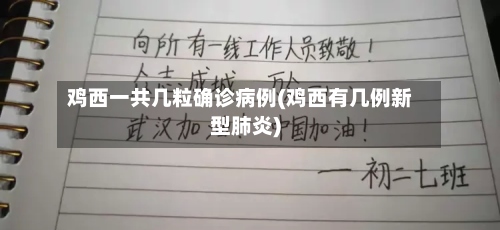 向所有一线工作人员致敬！
众志成城
鸡西一共几粒确诊病例(鸡西有几例新
型肺炎)
武汉加油！中国加油！
— 初二七班